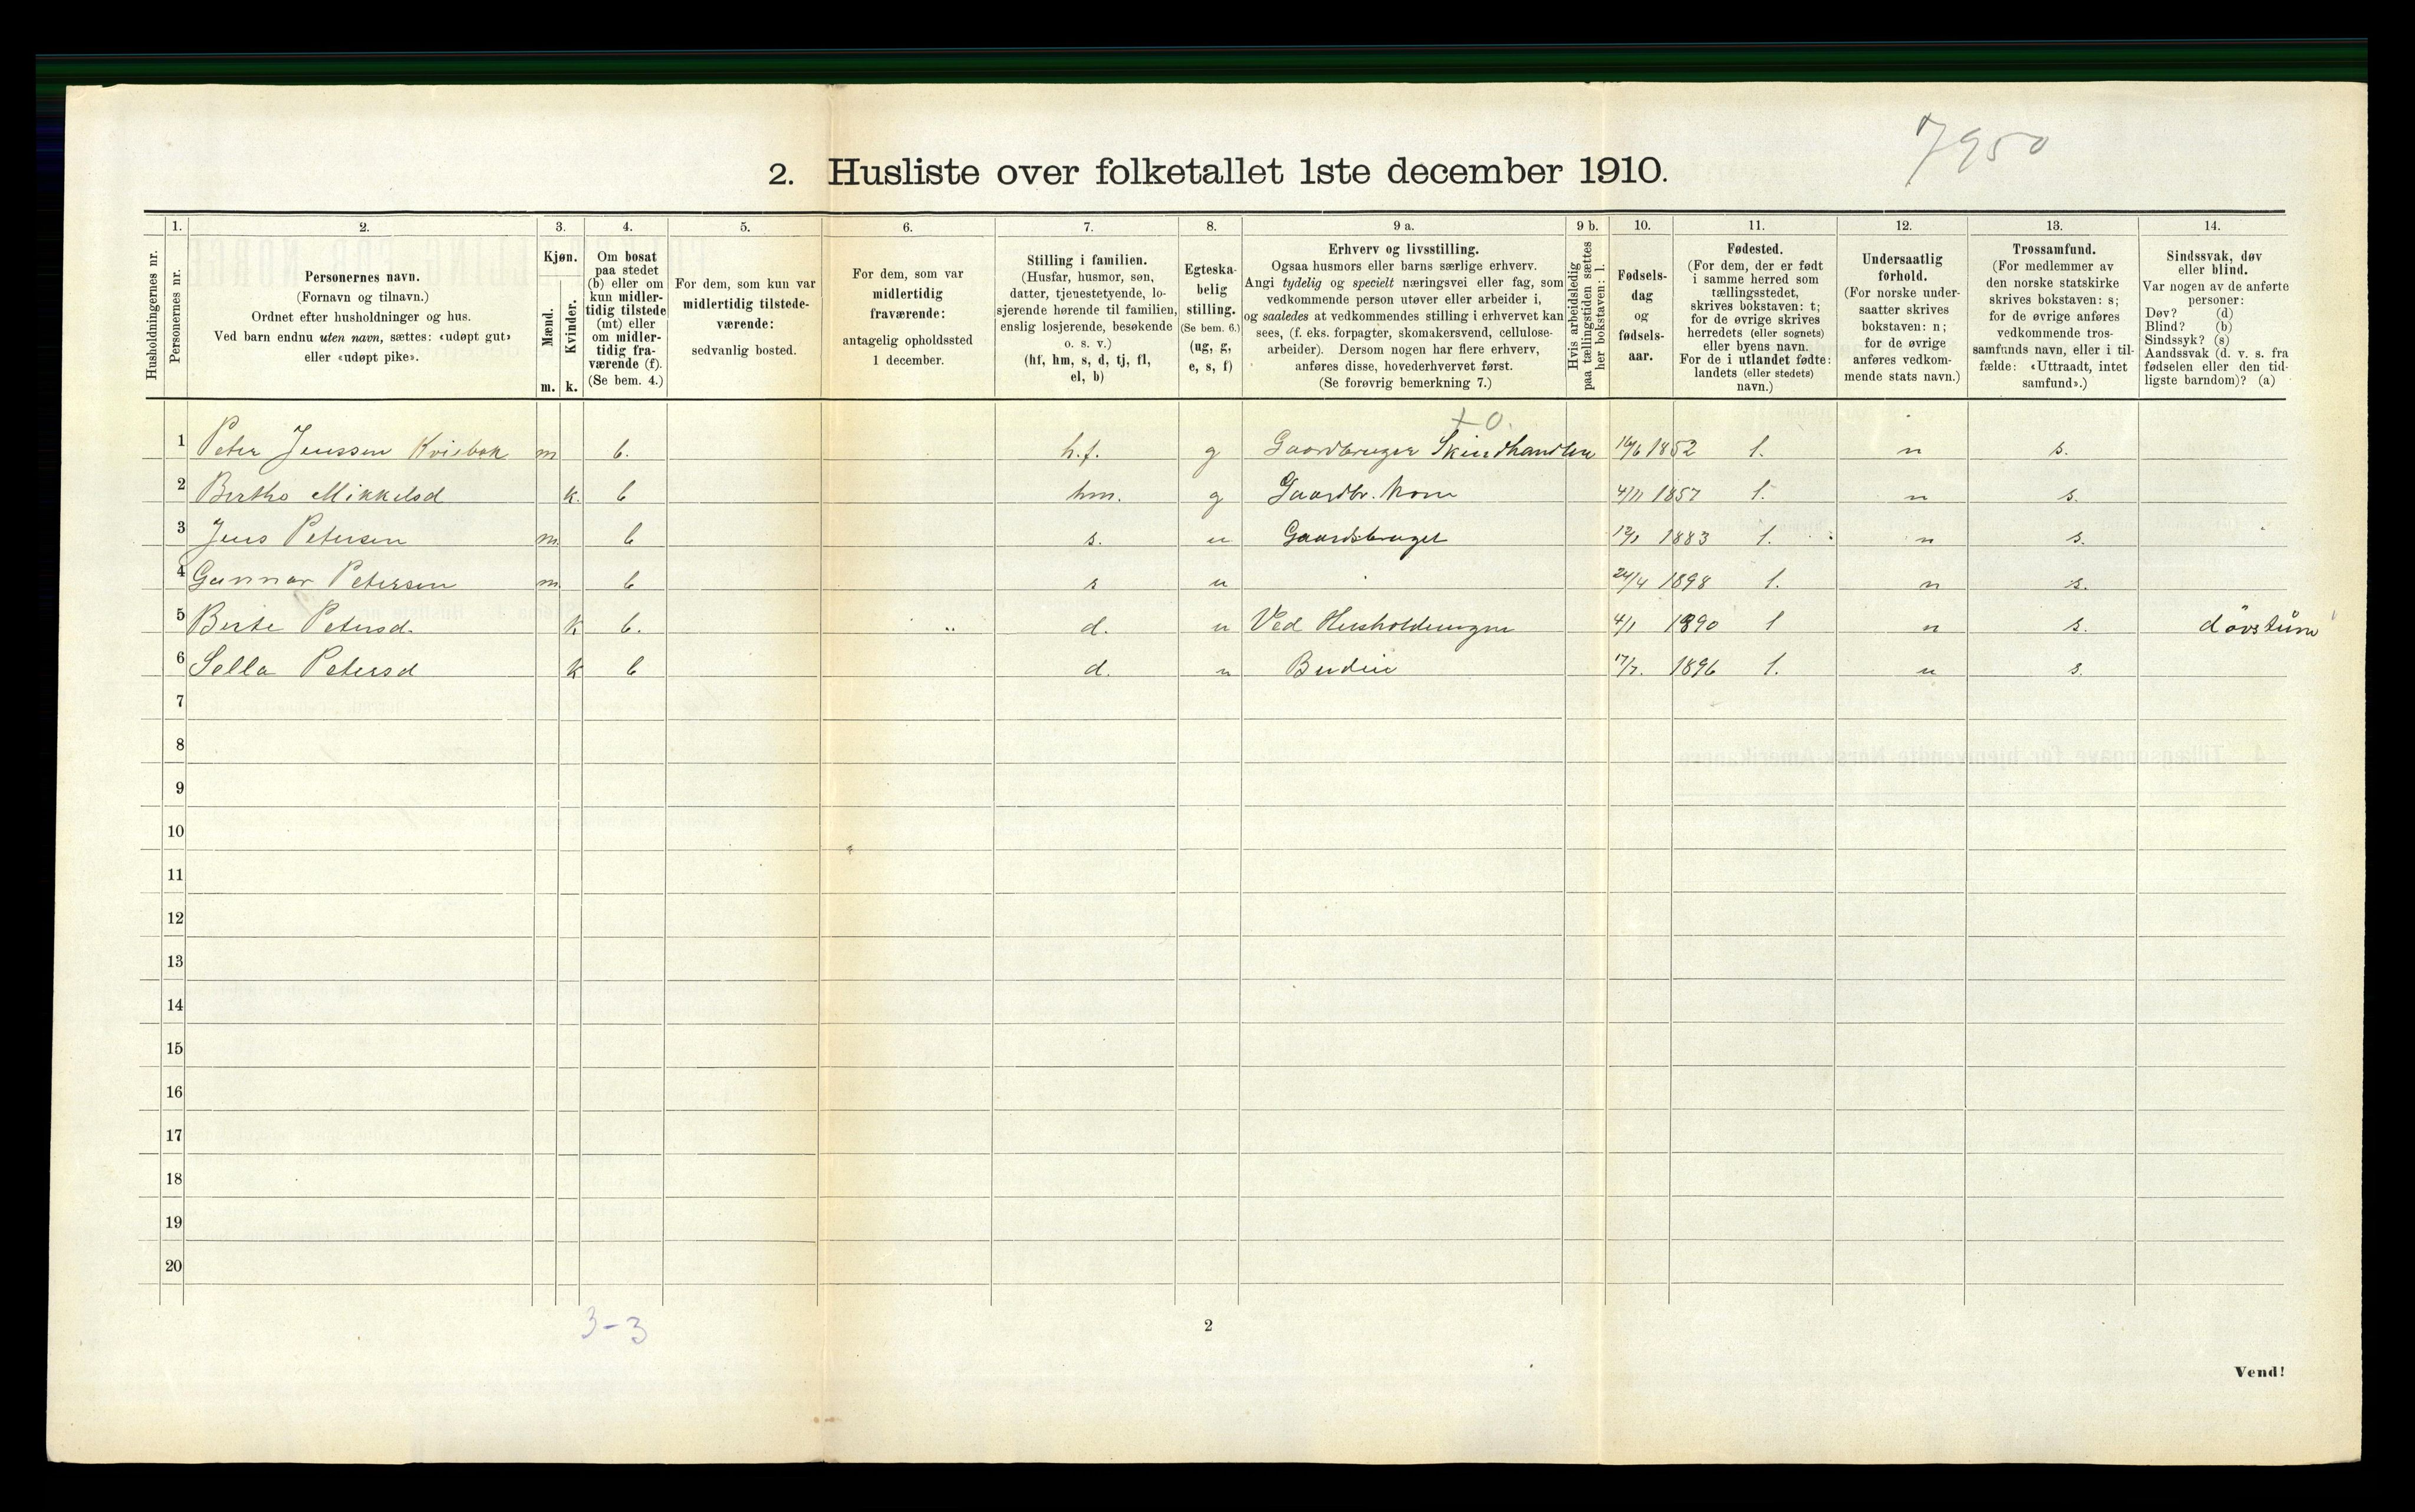 7950
2. Husliste over folketallet 1ste december 1910.
Husholdningernes nr.
1.
Personernes nr.
2.
Personernes navn.
(Fornavn og tilnavn.)
Ordnet efter husholdninger og hus.
Ved barn endnu uten navn, sættes: «udøpt gut»
eller «udøpt pike».
3.
Kjøn.
Mænd.
Kvinder.
m. k.
4.
Om bosat
paa stedet
(b) eller om
kun midler-
tidig tilstede
(mt) eller
om midler-
tidig fra-
værende (f).
(Se bem. 4.)
5.
For dem, som kun var
midlertidig tilstede-
værende:
sedvanlig bosted.
6.
For dem, som var
midlertidig
fraværende:
antagelig opholdssted
1 december.
7.
Stilling i familien.
(Husfar, husmor, søn,
datter, tjenestetyende, lo-
sjerende hørende til familien,
enslig losjerende, besøkende
o. s. v.)
(hf, hm, s, d, tj, fl,
el, b)
8.
Egteska-
belig
stilling.
(Se bem. 6.)
(ug, g,
e, s, f)
9 a.
Erhverv og livsstilling.
Ogsaa husmors eller barns særlige erhverv.
Angi tydelig og specielt næringsvei eller fag, som
vedkommende person utøver eller arbeider i,
og saaledes at vedkommendes stilling i erhvervet kan
sees, (f. eks. forpagter, skomakersvend, cellulose-
arbeider). Dersom nogen har flere erhverv,
anføres disse, hovederhvervet først.
(Se forøvrig bemerkning 7.)
9 b.
Hvis arbeidsledig
paa tællingstiden sættes
her bokstaven: l.
10.
Fødsels-
dag
og
fødsels-
aar.
11.
Fødested.
(For dem, der er født
i samme herred som
tællingsstedet,
skrives bokstaven: t;
for de øvrige skrives
herredets (eller sognets)
eller byens navn.
For de i utlandet fødte:
landets (eller stedets)
navn.)
12.
Undersaatlig
forhold.
(For norske under-
saatter skrives
bokstaven: n;
for de øvrige
anføres vedkom-
mende stats navn.)
13.
Trossamfund.
(For medlemmer av
den norske statskirke
skrives bokstaven: s;
for de øvrige anføres
vedkommende tros-
samfunds navn, eller i til-
fælde: «Uttraadt, intet
samfund».)
14.
Sindssvak, døv
eller blind.
Var nogen av de anførte
personer:
Døv? (d)
Blind? (b)
Sindssyk? (s)
Aandssvak (d. v. s. fra
fødselen eller den tid-
ligste barndom)? (a)
+ 0.
1 Peter Jenssen Kviebak m b. h.f. g Gaardbruger Skindhandler 16/6 1852 t. n s.
2 Bertha Mikkelsd k. b hm. g Gaardbr. kone 4/11 1857 t. n s.
3 Jens Petersen m. b s. u Gaardsbruget 1883 t. n s.
4 Gunnar Petersen m. b s u 24/4 1898 t. n s.
5 Berte Petersd. k b. d. u Ved Husholdningen 4/1 1890 t n s. døvstum
6 Sella Petersd k b d. u Budeie 17/7. 1896 t. n s.
7
8
9
10
11
12
13
14
15
16
17
18
19
20
3-3
2
Vend!